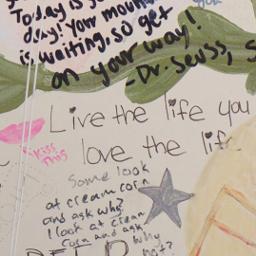 Today is
day! Your mount
is waiting, so get
on your way!
-Dr. Seuss, S
Live the life you
love the life
Kiss
This
Some look
at cream corn
and ask why?
I look at cream
corn and ask
why
not?